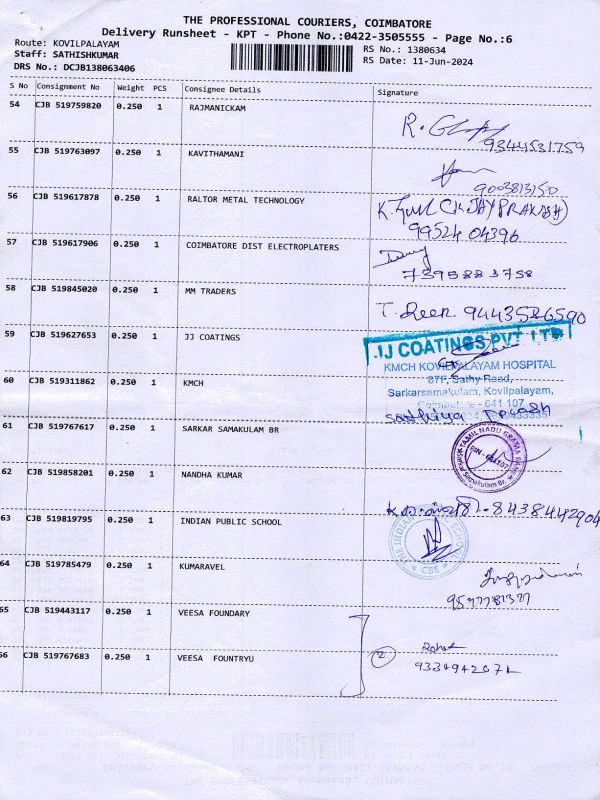 THE PROFESSIONAL COURIERS, COIMBATORE
Delivery Runsheet - KPT - Phone No.:0422-3505555 - Page No.:6
Route: KOVILPALAYAM
Staff: SATHISHKUMAR
DRS No.: DCJB138063406
RS No.: 1380634
RS Date: 11-Jun-2024
S No Consignment No Weight PCS Consignee Details Signature
54 CJB 519759820 0.250 1 RAJMANICKAM
9344531759
55 CJB 519763097 0.250 1 KAVITHAMANI
9003813150
56 CJB 519617878 0.250 1 RALTOR METAL TECHNOLOGY
(K JAYPRAKASH)
99524 04396
57 CJB 519617906 0.250 1 COIMBATORE DIST ELECTROPLATERS
7395883758
58 CJB 519845020 0.250 1 MM TRADERS
9443586590
59 CJB 519627653 0.250 1 JJ COATINGS
JJ COATINGS PVT LTD
KMCH KOVILPALAYAM HOSPITAL
87F, Sathy Road,
Sarkarsamakulam, Kovilpalayam,
Coimbatore - 641 107
60 CJB 519311862 0.250 1 KMCH
61 CJB 519767617 0.250 1 SARKAR SAMAKULAM BR
TAMIL NADU GRAMA BANK
Samakulam Br.
62 CJB 519858201 0.250 1 NANDHA KUMAR
8438442904
63 CJB 519819795 0.250 1 INDIAN PUBLIC SCHOOL
THE INDIAN PUBLIC SCHOOL
CBE
64 CJB 519785479 0.250 1 KUMARAVEL
65 CJB 519443117 0.250 1 VEESA FOUNDARY
2
66 CJB 519767683 0.250 1 VEESA FOUNTRYU